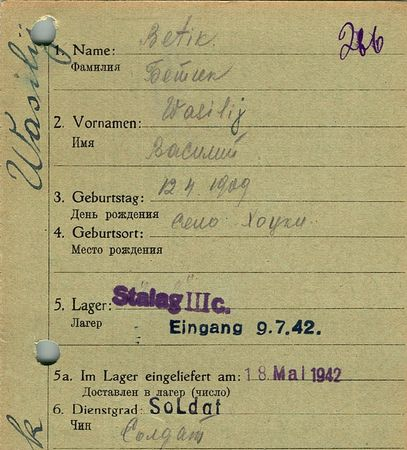 Wasilij
k
266
1. Name: Betik.
Фамилия Бетик
2. Vornamen: Wasilij
Имя Василий
3. Geburtstag: 12 4 1909
День рождения
4. Geburtsort: село Хоцки
Место рождения
5. Lager: Stalag III c.
Лагер Eingang 9.7.42.
5a. Im Lager eingeliefert am: 18. Mai 1942
Доставлен в лагер (число)
6. Dienstgrad: Soldat
Чин Солдат